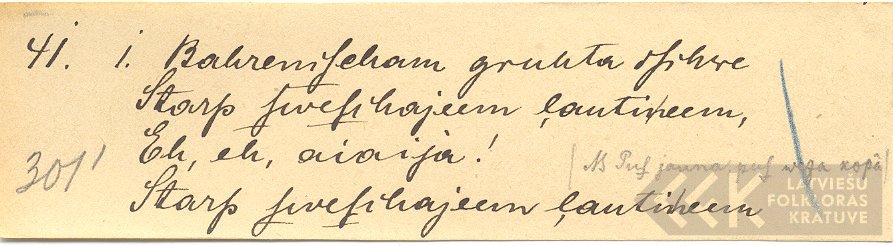 41. 1. Bahrenischam gruhta dsihwe
Starp swesihajeem ļautiņeem,
Eh, eh, aiaija!
301¹
Starp swesihajeem ļautiņeem
LATVIEŠU
FOLKLORAS
KRATUVE